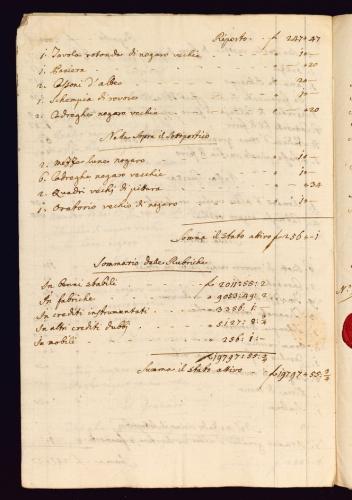 Riporto . . £ 247 " 47
1. Tavola rotonda di nogaro vechia . . . " 10 "
1. . . . " " 20
2. Cassoni d'albeo . . . 20 "
1. Schenpia di rovore . . . " 10 "
2. Cadreghe nogaro vechie . . . " " 20
Nella Sopra il Sotoportico
2. Mezze lune nogaro . . . " 10 "
6. Cadreghe nogaro vechie . . . " 10 "
2. Quadri vechi di pitura . . . " " 34
1. Oratorio vechio di nogaro . . . " 10 "
Somma il stato ativo £ 256 " 1
Sommario delle Rubriche
In benni stabili . . . £ 2011:55:2
In fabriche . . . " 9083:49:2
In crediti instrumentati . . " 3256:1:
In altri crediti dubj . . . " 5127:8:
In mobili . . . " 256:1:
£ 19797:55:
Summa il stato ativo . . £ 19797 " 55: